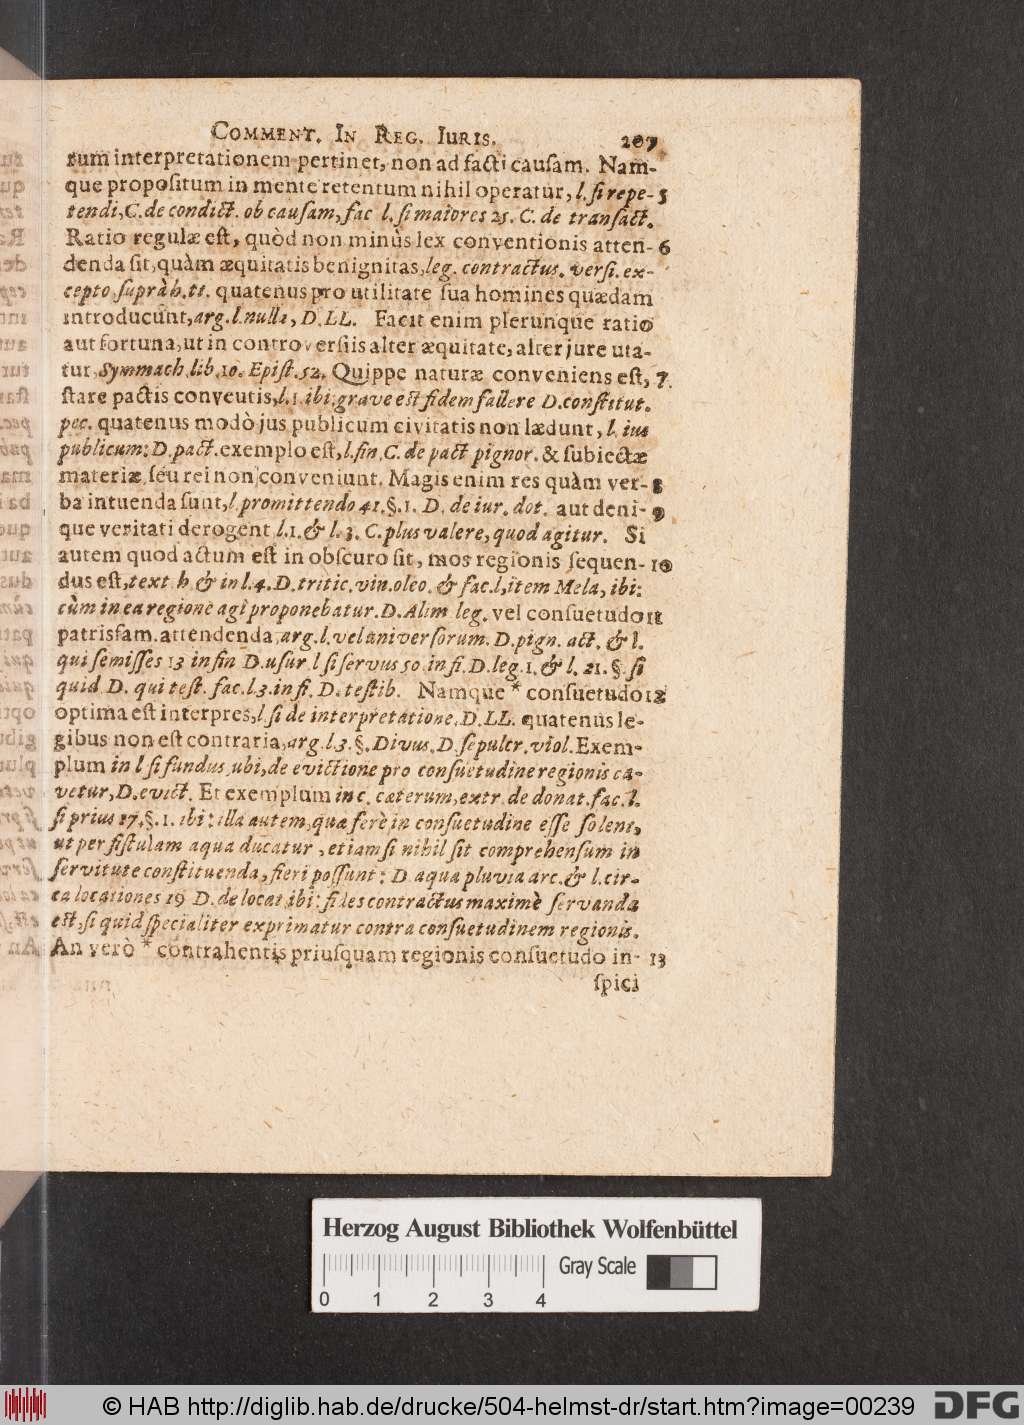 COMMENT. IN REG. IURIS. 207
rum interpretationem pertinet, non ad facti causam. Nam-
que propositum in mente retentum nihil operatur, l. si repe- 5
tendi, C. de condict. ob causam, fac l. si maiores 25. C. de transact.
Ratio regulæ est, quòd non minùs lex conventionis atten- 6
denda sit, quàm æquitatis benignitas, leg. contractus. versi. ex-
cepto, suprà h. tt. quatenus pro utilitate sua homines quædam
introducunt, arg. l. nulla, D. LL. Facit enim plerunque ratio
aut fortuna, ut in controversiis alter æquitate, alter jure uta-
tur, Symmach lib. 10. Epist. 52. Quippe naturæ conveniens est, 7.
stare pactis conventis, l. 1. ibi: grave est fidem fallere D. constitut.
pec. quatenus modò jus publicum civitatis non lædunt, l. ius
publicum: D. pact. exemplo est, l. fin. C. de pact pignor. & subiectæ
materiæ, seu rei non conveniunt. Magis enim res quàm ver- 8
ba intuenda sunt, l. promittendo 41. §. 1. D. de iur. dot. aut deni- 9
que veritati derogent l. 1. & l. 3. C. plus valere, quod agitur. Si
autem quod actum est in obscuro sit, mos regionis sequen- 10
dus est, text. h. & in l. 4. D. tritic. vin. oleo. & fac. l, item Mela, ibi:
cùm in ea regione agi proponebatur. D. Alim leg. vel consuetudo 11
patrisfam. attendenda, arg. l. vel universorum. D. pign. act. & l.
qui semisses 13 in fin D. usur l si servus 50. in fi. D. leg. 1. & l. 21. §. si
quid D. qui test. fac. l 3. in fi. D. testib. Namque * consuetudo 12
optima est interpres, l si de interpretatione, D. LL. quatenus le-
gibus non est contraria, arg. l 3. §. Divus. D. sepulcr. viol. Exem-
plum in l si fundus, ubi, de evictione pro consuetudine regionis ca-
vetur, D. evict. Et exemplum in c. cæterum, extr. de donat. fac. l.
si prius 17. §. 1. ibi: illa autem, quæ ferè in consuetudine esse solent,
ut per fistulam aqua ducatur, etiamsi nihil sit comprehensum in
servitute constituenda, fieri possunt: D. aqua pluvia arc. & l. cir-
ca locationes 19 D. de locat ibi: fides contractus maximè servanda
est, si quid specialiter exprimatur contra consuetudinem regionis.
An verò * contrahentis priusquam regionis consuetudo in- 13
spici
Herzog August Bibliothek Wolfenbüttel
Gray Scale
0 1 2 3 4
© HAB http://diglib.hab.de/drucke/504-helmst-dr/start.htm?image=00239
DFG